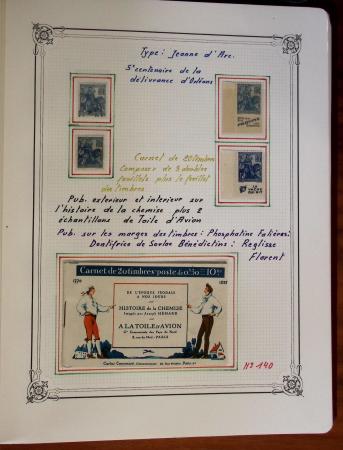 Type: Jeanne d'Arc.
5e centenaire de la
délivrance d'Orléans
Carnet de 20 timbres
composer de 3 doubles
feuillets plus le feuillet
des timbres
Pub. exterieur et interieur sur
l'histoire de la chemise plus 2
échantillons de Toile d'Avion
Pub. sur les marges des timbres: Phosphatine Falières:
Dentifrice de Savlar Bénédictins: Reglisse
Florent
Carnet de 20 timbres poste de 0,50 : 10 frs
DE L'EPOQUE FEODALE
A NOS JOURS
HISTOIRE de la CHEMISE
Imagée par Joseph HÉMARD
A LA TOILE D'AVION
PARIS
Carlos Courmont
N° 140